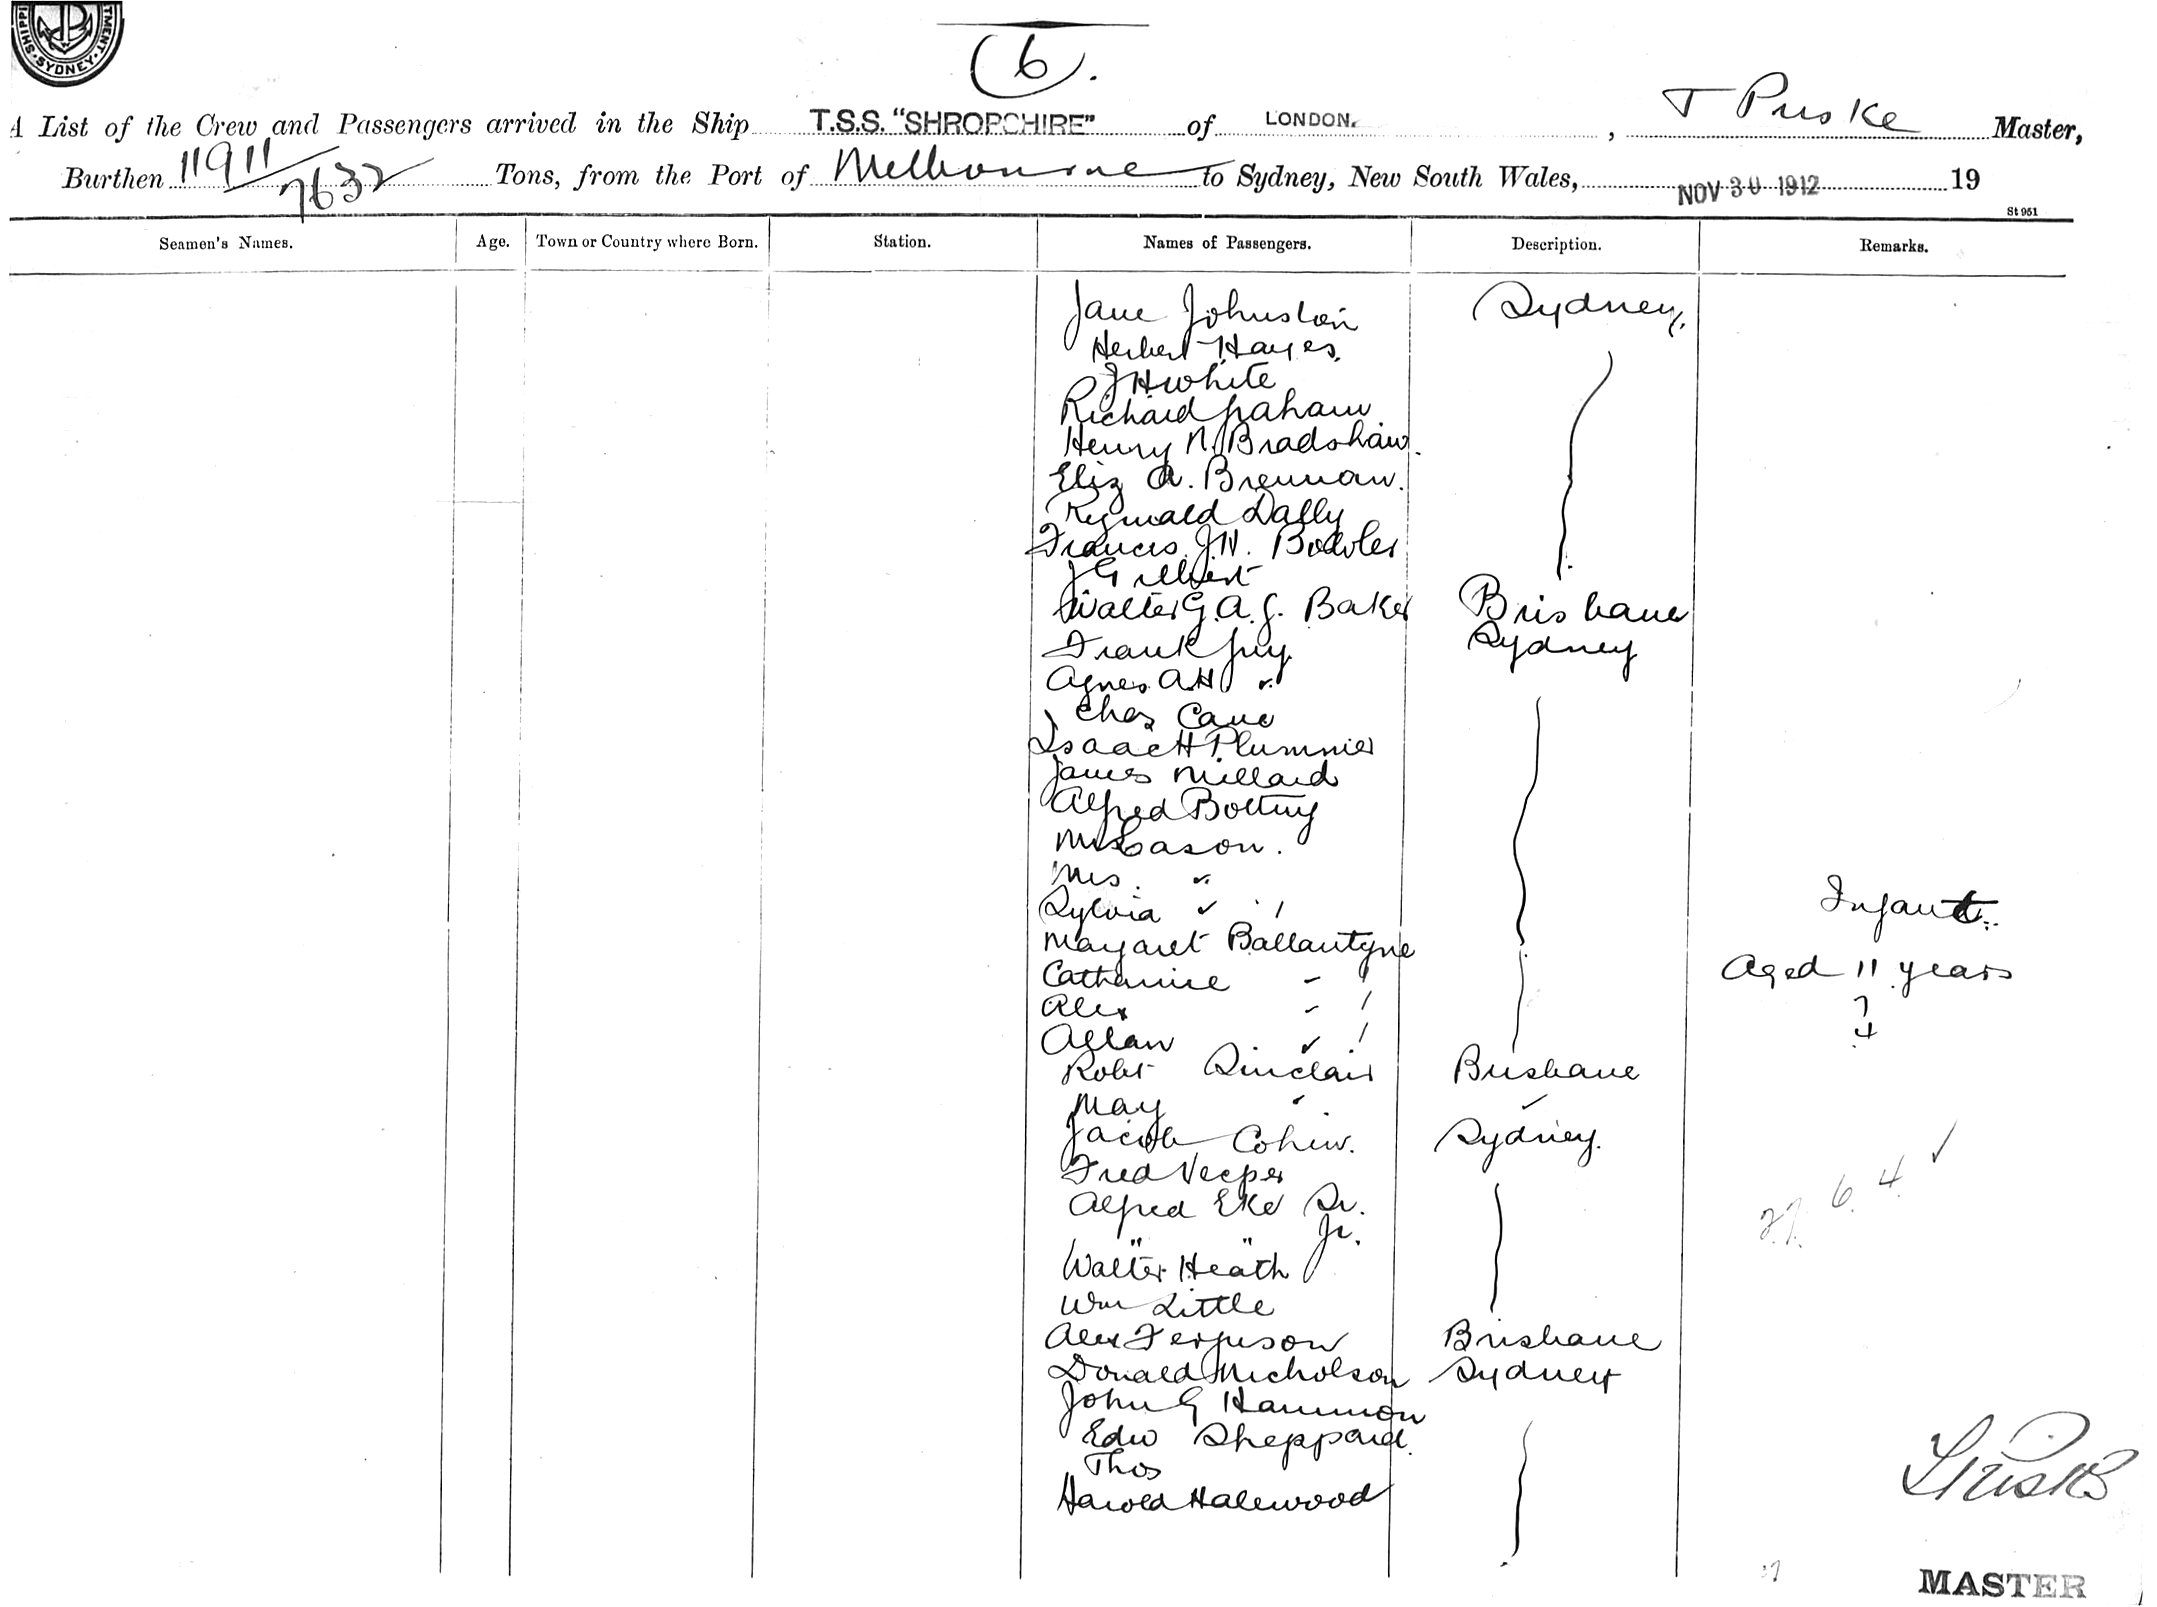 SHIPPI TMENT SYDNEY
(6).
A List of the Crew and Passengers arrived in the Ship T.S.S. "SHROPCHIRE" of LONDON. , T Pruske Master,
Burthen 11911/7632 Tons, from the Port of Melbourne to Sydney, New South Wales, NOV 30 1912 19
St 951
Seamen's Names. Age. Town or Country where Born. Station. Names of Passengers. Description. Remarks.
Jane Johnston Sydney.
Herbert Hayes.
J H White
Richard Graham
Henry N. Bradshaw.
Eliz A. Brennan.
Reginald Dally
Francis J.N. Bowler
J Gilbert
Walter G. A. J. Baker Brisbane
Frank Guy Sydney
Agnes A H "
Chas Cane
Isaac H Plummer
James Millard
Alfred Botting
Mr Eason.
Mrs. "
Sylvia " Infant.
Margaret Ballantyne
Catherine " Aged 11 years
Alex " 7
Allan " 4
Robt Sinclair Brisbane
May " "
Jacob Cohen. Sydney.
Fred
Alfred Eke Sr.
" " Jr.
Walter Heath
Wm Little
Alex Ferguson Brisbane
Donald Nicholson Sydney
John G Hammon
Edw Sheppard.
Thos
Harold Halewood
27. 6. 4
MASTER